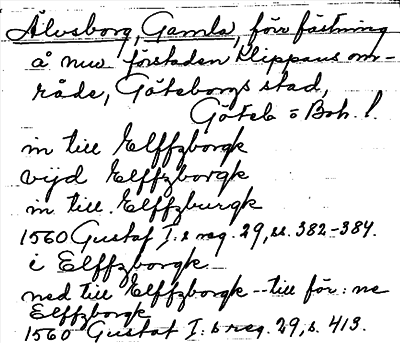 Älvsborg, Gamla, förr fästning
å nuv förstaden Klippans om-
råde, Göteborgs stad,
Göteb o Boh. l.
in till Elffzborgk
vijd Elffzborgk
in till Elffzburgk
1560 Gustaf I:s reg. 29, ss. 382-384.
i Elffzborgk
ned till Elffzborgk -- till för: ne
Elffzborgk
1560 Gustaf I:s reg. 29, s. 413.